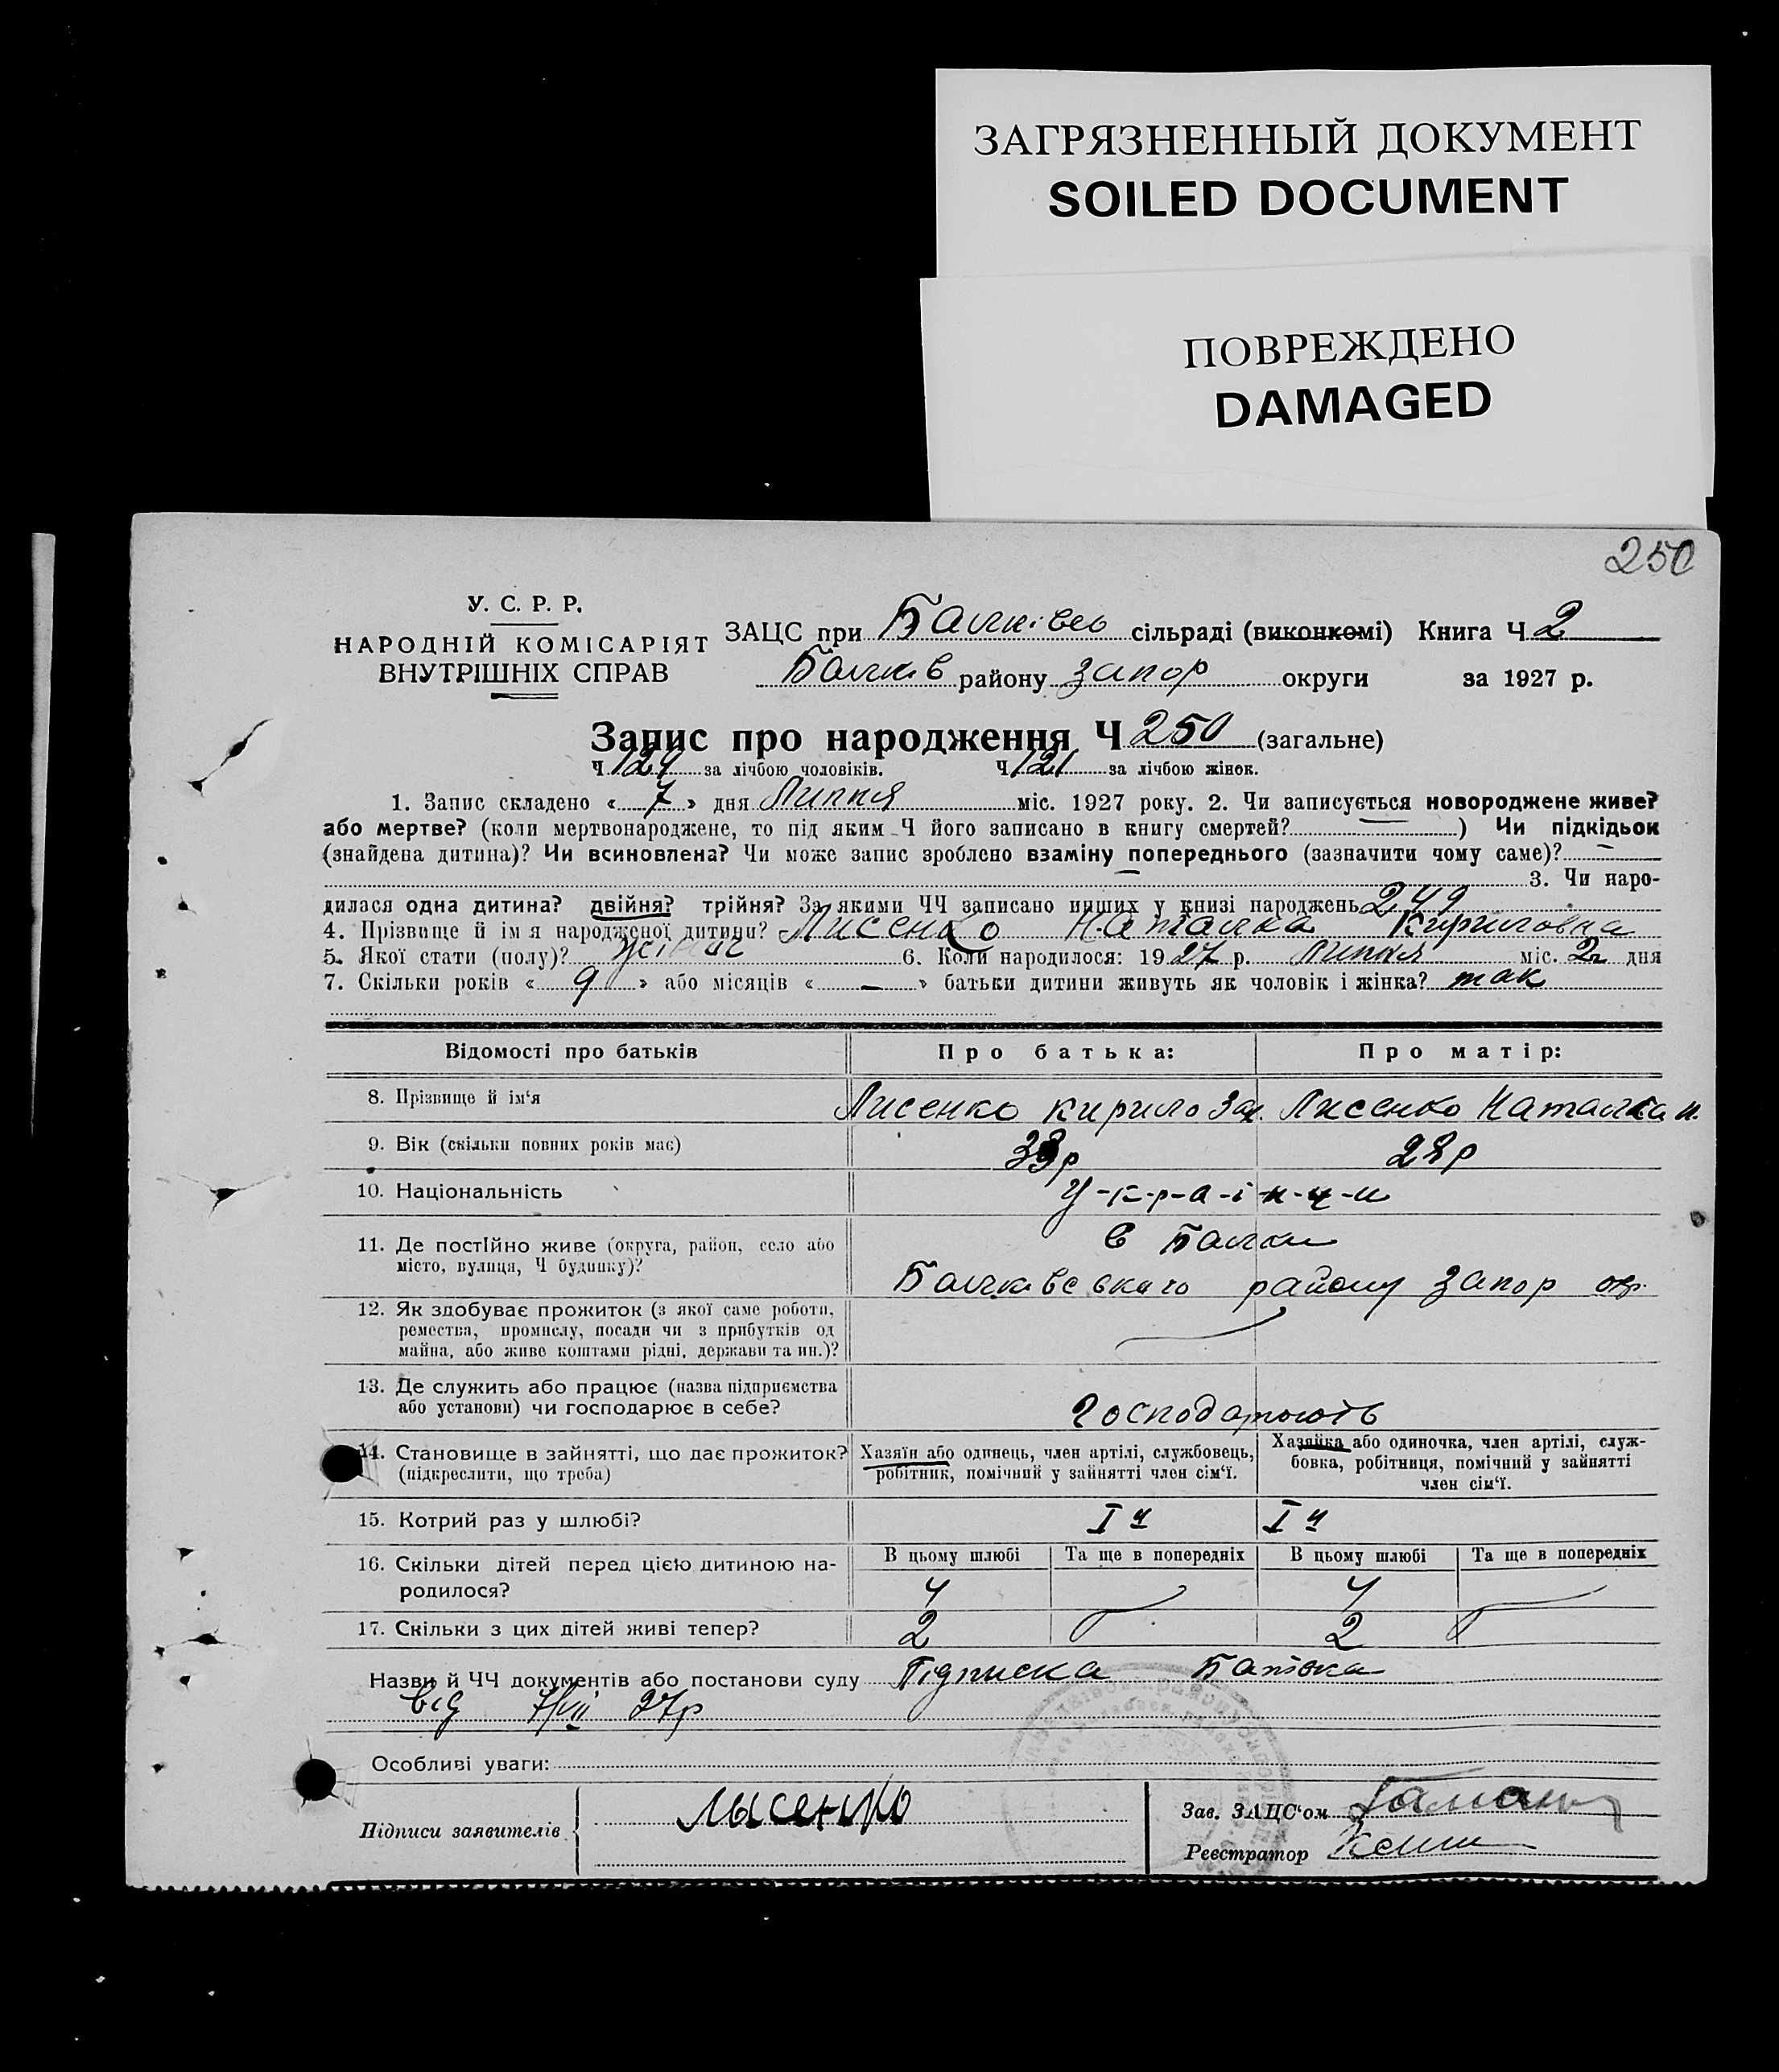 ЗАГРЯЗНЕННЫЙ ДОКУМЕНТ
SOILED DOCUMENT
ПОВРЕЖДЕНО
DAMAGED
250
У. С. Р. Р.
НАРОДНІЙ КОМІСАРІЯТ
ВНУТРІШНІХ СПРАВ
ЗАЦС при Балківсь сільраді (виконкомі) Книга Ч 2
Балків району Запор округи за 1927 р.
Запис про народження Ч 250 (загальне)
Ч 124 за лічбою чоловіків. Ч 121 за лічбою жінок.
1. Запис складено « 7 » дня Липня міс. 1927 року. 2. Чи записується новороджене живе?
або мертве? (коли мертвонароджене, то під яким Ч його записано в книгу смертей? ) Чи підкідьок
(знайдена дитина)? Чи всиновлена? Чи може запис зроблено взаміну попереднього (зазначити чому саме)? —
3. Чи наро-
дилася одна дитина? двійня? трійня? За якими ЧЧ записано инших у книзі народжень 249
4. Прізвище й ім'я народженої дитини? Лисенко Наталка Кириловна
5. Якої стати (полу)? 6. Коли народилося: 1927 р. Липня міс. 2 дня
7. Скільки років « 9 » або місяців « — » батьки дитини живуть як чоловік і жінка? так
Відомості про батьків Про батька: Про матір:
8. Прізвище й ім'я Лисенко Кирило Зах. Лисенко Наталка и.
9. Вік (скільки повних років має) 28р
10. Національність У-к-р-а-ї-н-ц-и
11. Де постійно живе (округа, район, село або в Балки
місто, вулиця, Ч будинку)? Балківського району Запор окр.
12. Як здобуває прожиток (з якої саме роботи,
ремества, промислу, посади чи з прибутків од
майна, або живе коштами рідні, держави та ин.)? —
13. Де служить або працює (назва підприємства
або установи) чи господарює в себе? Господарюють
14. Становище в зайнятті, що дає прожиток?
(підкреслити, що треба)
Хазяїн або одинець, член артілі, службовець,
робітник, помічний у зайнятті член сім'ї.
Хазяйка або одиночка, член артілі, служ-
бовка, робітниця, помічний у зайнятті
член сім'ї.
15. Котрий раз у шлюбі? I й I й
16. Скільки дітей перед цією дитиною на-
родилося?
В цьому шлюбі Та ще в попередніх В цьому шлюбі Та ще в попередніх
4 4
17. Скільки з цих дітей живі тепер? 2 2
Назви й ЧЧ документів або постанови суду Підписка Батька
від 7/VII 27р
Особливі уваги:
Підписи заявителів Лысенко
Зав. ЗАЦС'ом
Реєстратор